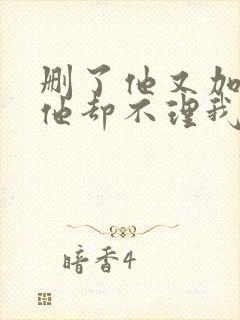 删了他又加
他却不理我
暗香4